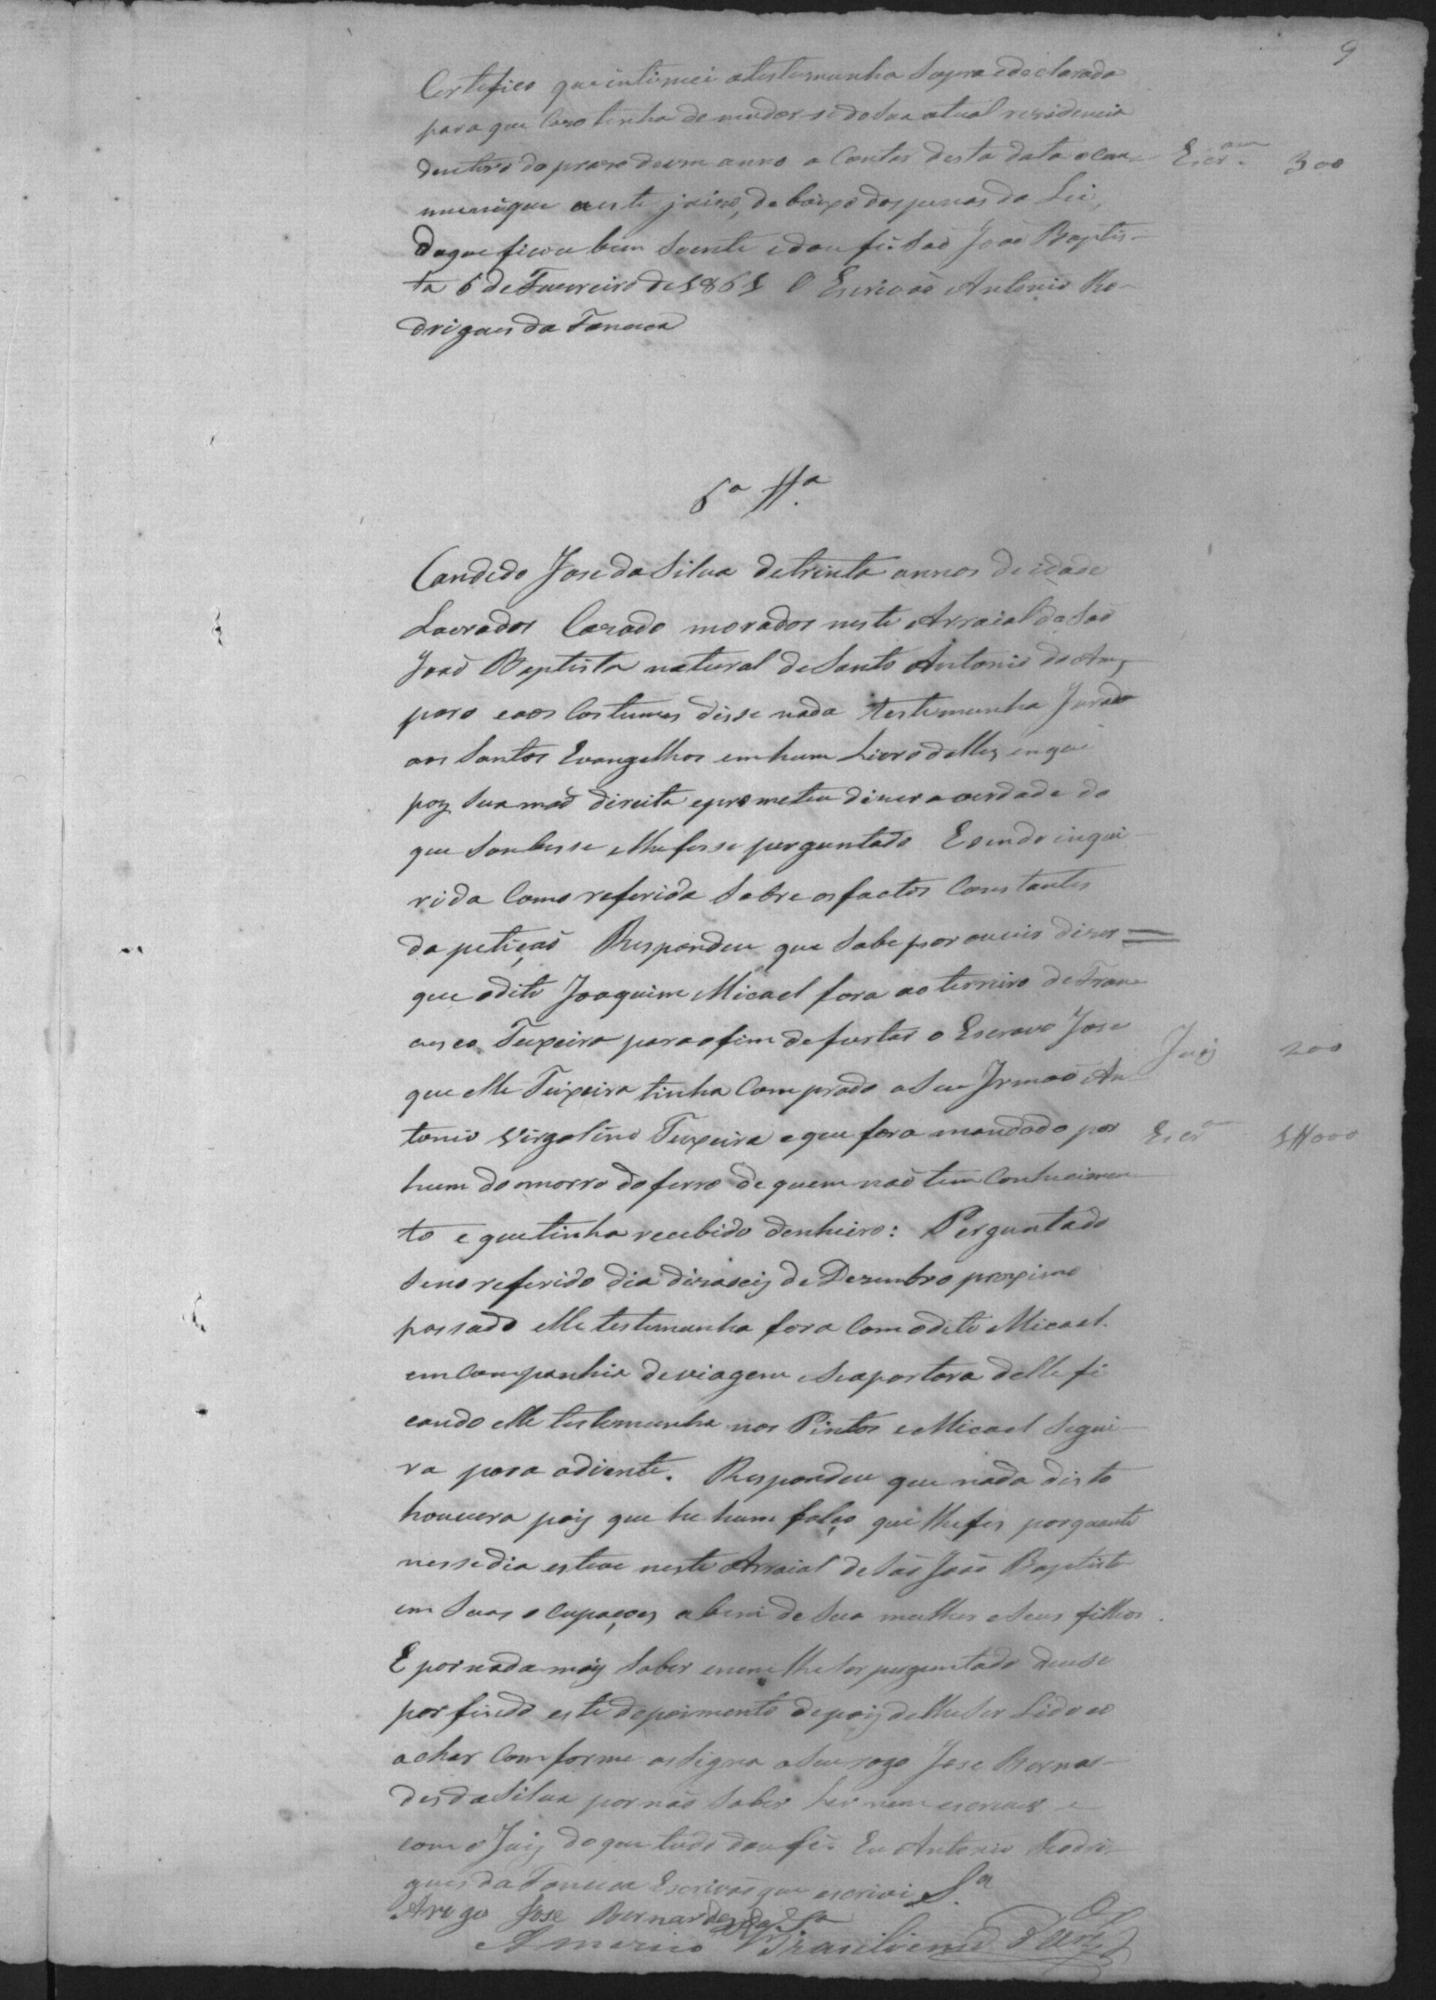 9
Certefico que intimei a testemunha Supra edeclarada
para que Caso tenha de mudar-se da Sua atual residencia
dentro do praso deum anno a Contar desta data o com-
munique a este juiso, de baixo das penas da Lei,
do que ficou bem Sciente e dou fé. Saõ Joaõ Baptis-
ta 6 de Fevereiro de 1861 O Escrivaõ Antonio Ro-
drigues da Fonceca
Escr.am 300
6ª Tª
Candido Jose da Silva de trinta annos de idade
Lavrador Cazado morador neste Arraial de Saõ
Joaõ Baptista natural de Santo Antonio do Am-
paro e aos Costumes disse nada testemunha Jurada
aos Santos Evangelhos em hum Livro delles em que
poz Sua maõ direita e prometeu dizer a verdade do
que Soubesse e lhe fosse perguntado E sendo inqui-
rida Como referida Sobre os factos Constantes
da petiçaõ Respondeu que Sabe por ouvir dizer =
que odito Joaquim Micael fora ao terreiro de Fran-
cisco Teixeira para o fim de furtar o Escravo Jose
que elle Teixeira tinha Comprado a Seu Irmaõ An-
Juiz 200
tonio Virgolino Teixeira e que fora mandado por
Escr.am 1$000
hum do morro do ferro de quem naõ tem Conhecimen-
to e que tinha recebido denheiro: Perguntado
Se no referido dia dezaseis de Dezembro proximo
passado elle testemunha fora Com odito Micael
em Companhia de viagem e Se apartara delle fi
cando elle testemunha nos Pintos e Micael Segui-
ra para adiente. Respondeu que nada disto
houvera pois que he hum falço que lhe fes porquanto
nesse dia esteve neste Arraial de Saõ Joaõ Baptista
em Suas o cupaçoes a bem de Sua mulher e Seus filhos.
E por nada mais Saber e nem lhe Ser perguntado deu se
por findo este depoimento depois de lhe Ser Lido eo
achar Com forme assigna a Seu rogo Jose Bernar-
des da Silva por naõ Saber Ler nem escrever e
com o Juiz do que tudo dou fé. Eu Antonio Rodri-
gues da Fonceca Escrivaõ que escrivi
Arogo Jose Bernardes da Sª
Americo Brasiliense